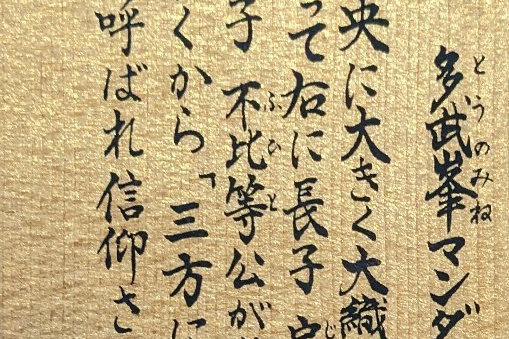 多武峯マンダ
とうのみね
央に大きく大織
って右に長子
じ
子 不比等公が
ふひと
くから「三方に
呼ばれ信仰さ